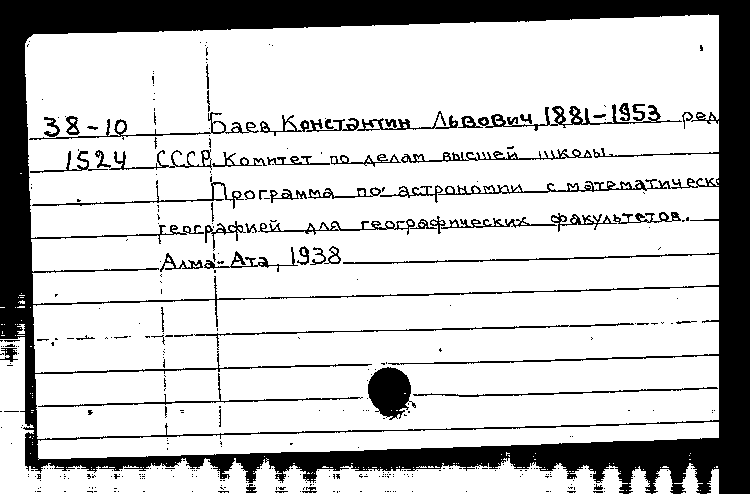 38-10 Баев, Константин Львович, 1881-1953 ред
1524 СССР. Комитет по делам высшей школы.
Программа по астрономии с математическо
географией для географических факультетов.
Алма-Ата, 1938